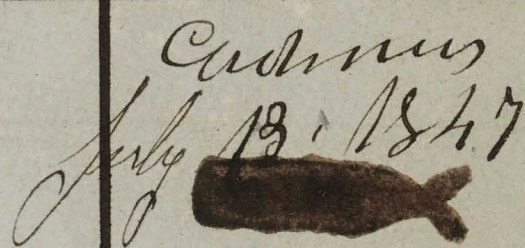 Cadmus
July 13, 1847